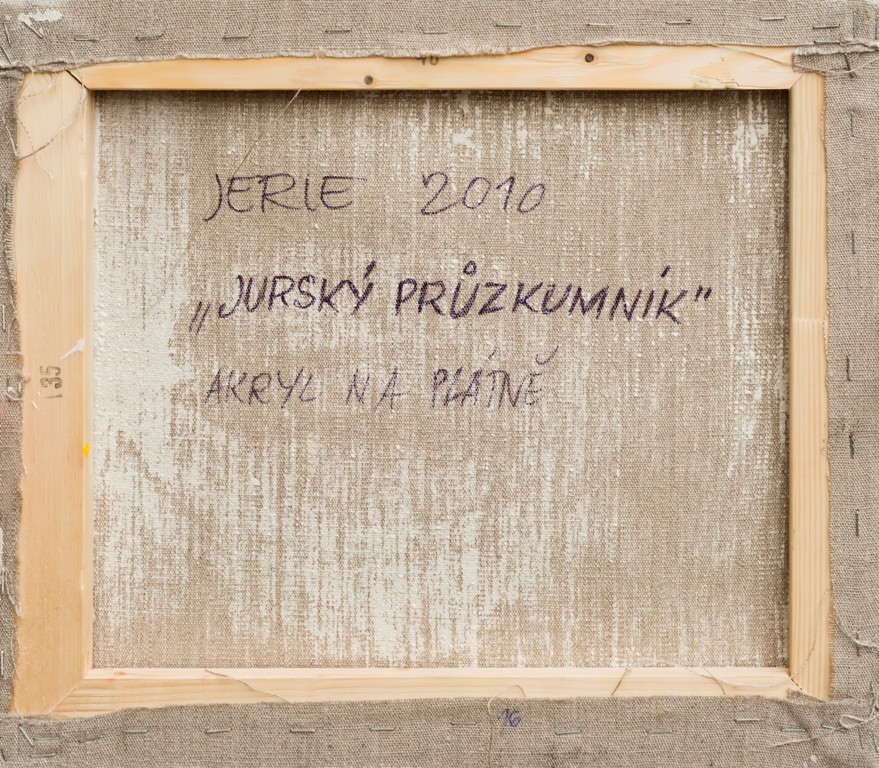 JERIE 2010
„JURSKÝ PRŮZKUMNÍK"
AKRYL NA PLÁTNĚ
35
16